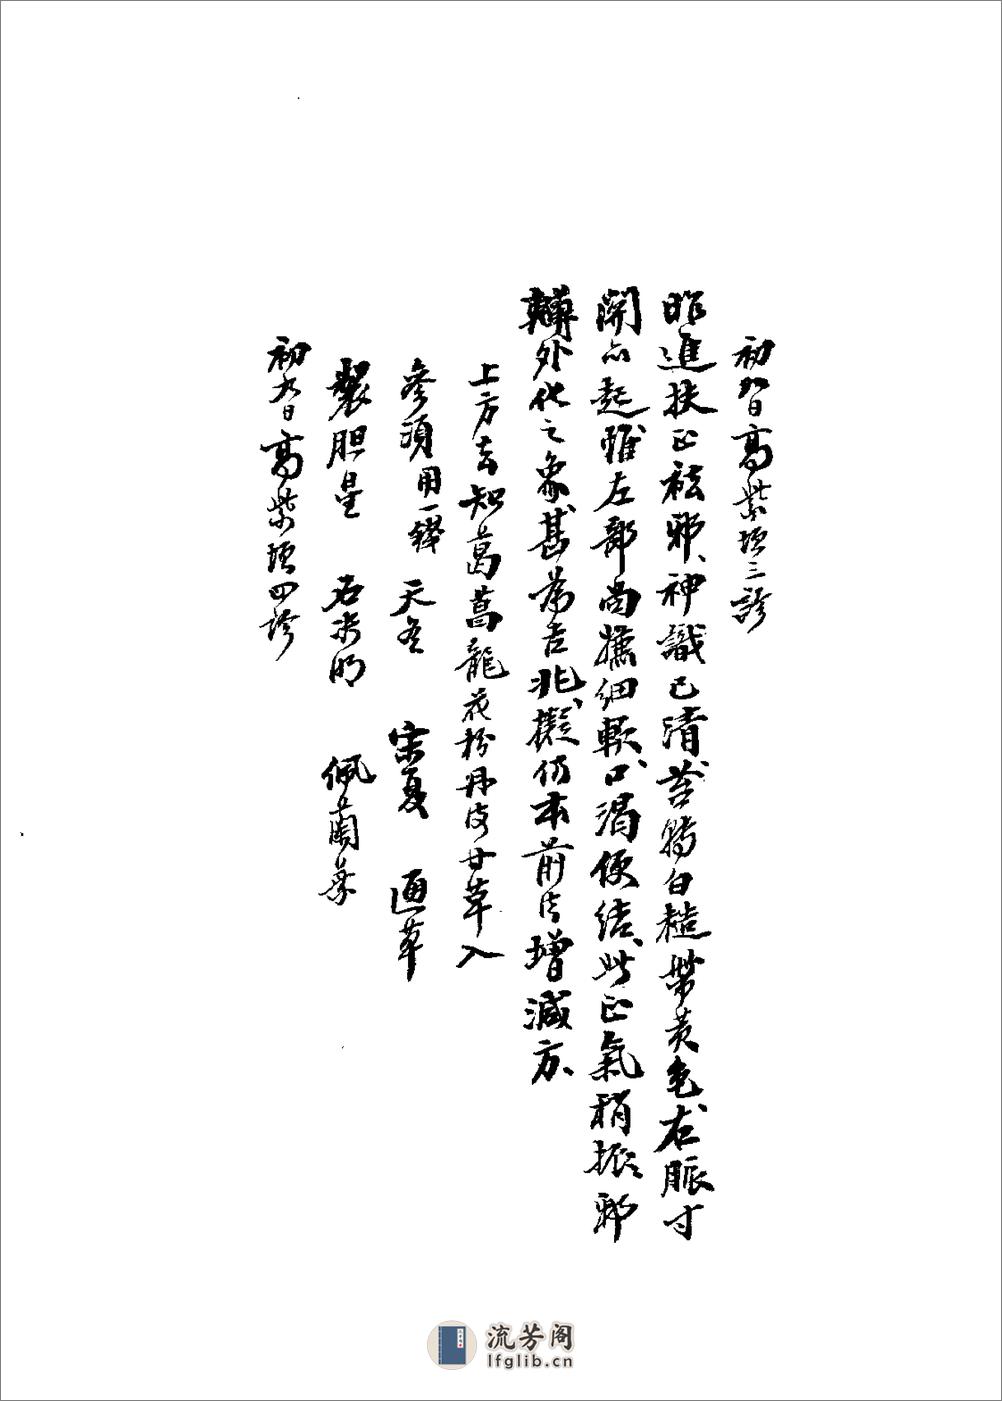 初八日高紫垣三診
昨進扶正祛邪、神識已清、苔轉白糙帶黃色、右脈寸
關亦起、雖左部尚嫌細軟、口渴便結、此正氣稍振、邪
轉外化之象、甚為吉兆、擬仿本前法增減方、
上方去知葛菖龍花粉丹皮甘草入
參須用一錢 天冬 宋夏 通草
製膽星 石決明 佩蘭葉
初九日高紫垣四診
流芳阁
lfglib.cn